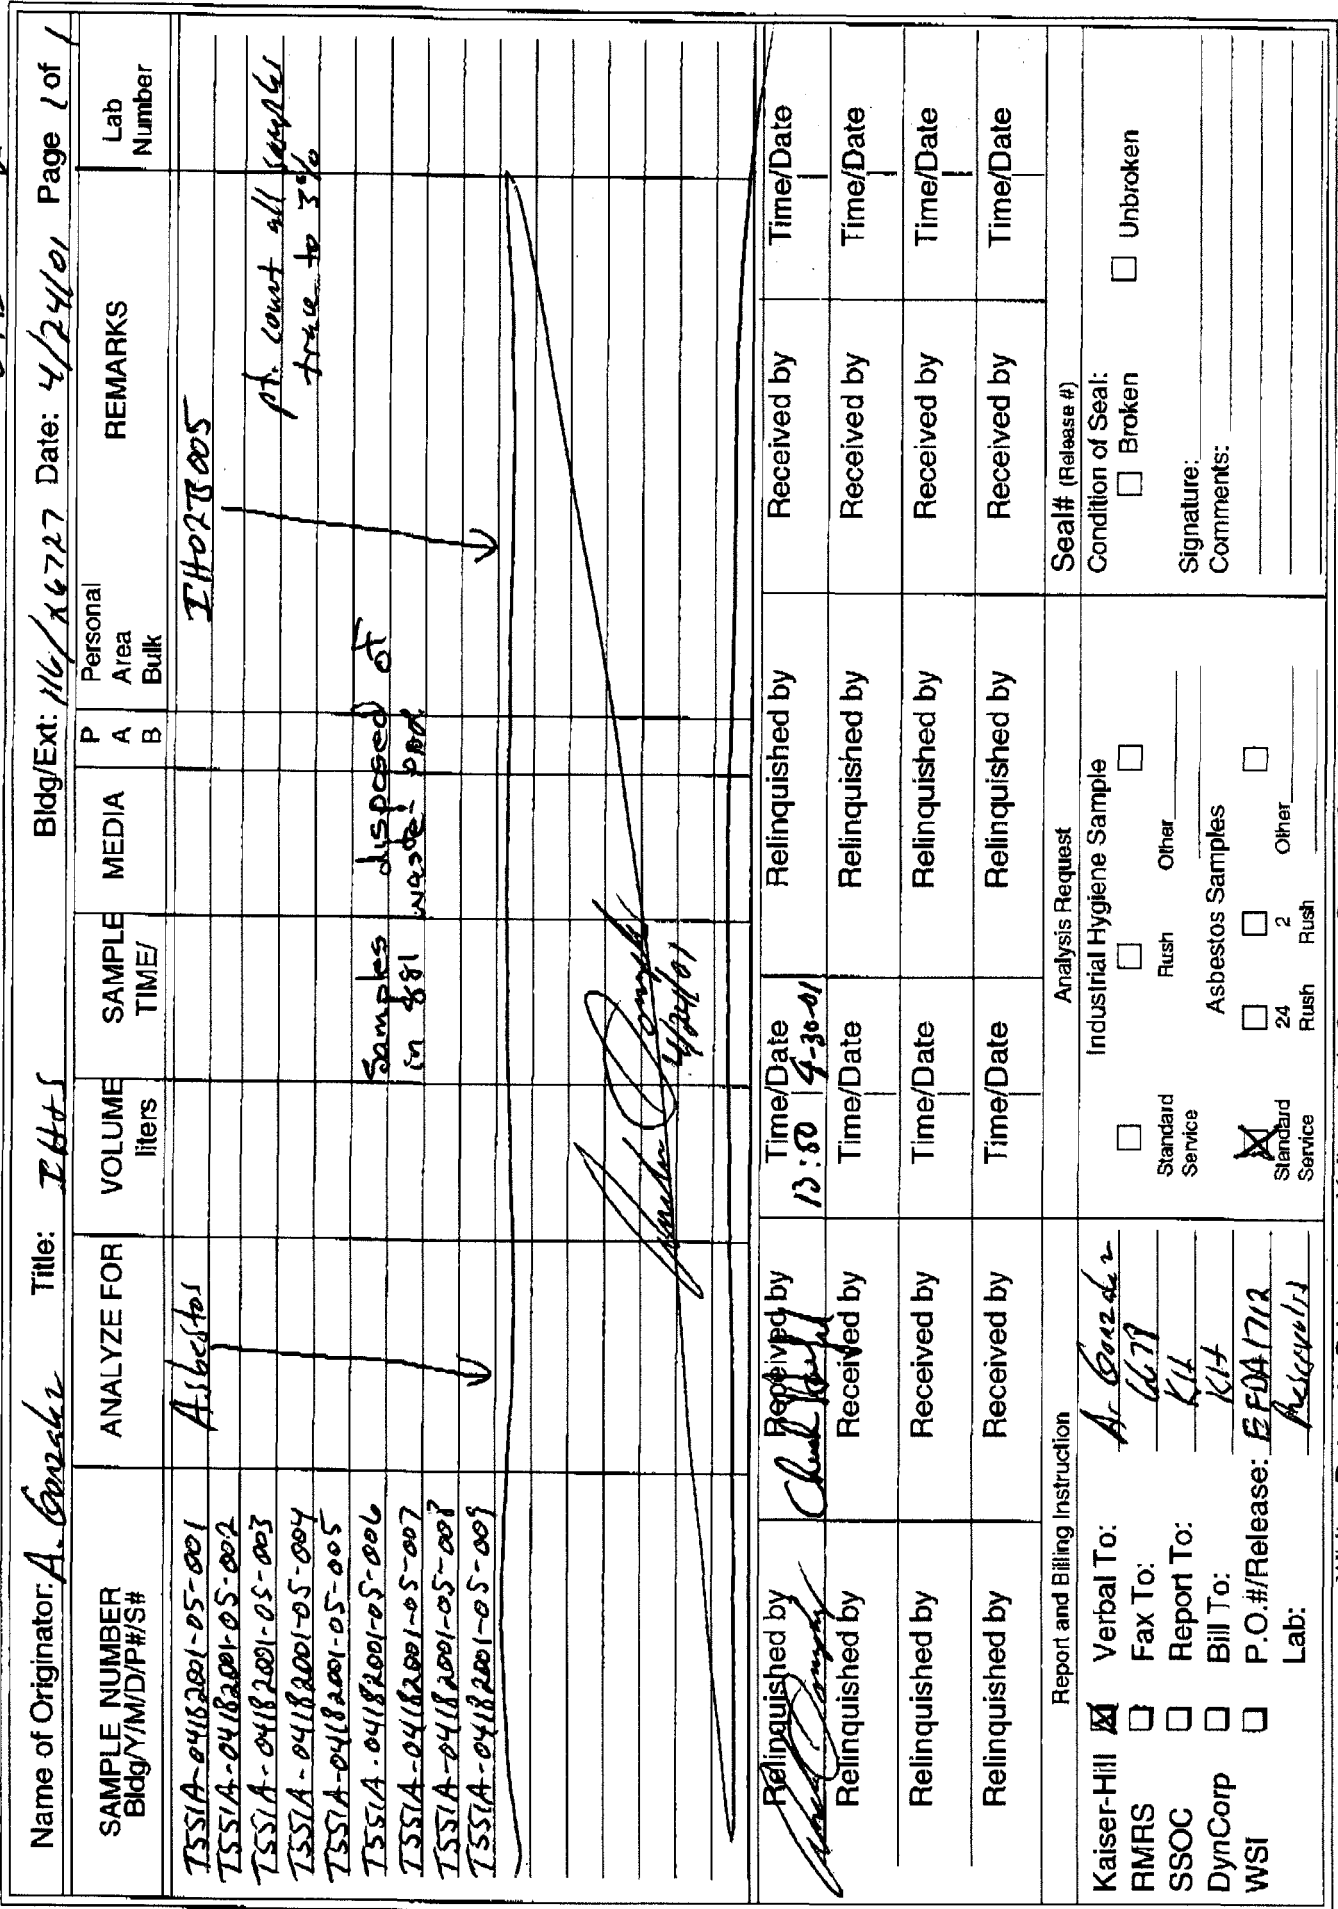 Name of Originator: A. Gonzalez Title: IH+S Bldg/Ext: 116/X6727 Date: 4/24/01 Page 1 of 1
SAMPLE NUMBER
Bldg/Y/M/D/P#/S#
ANALYZE FOR
VOLUME
liters
SAMPLE
TIME/
MEDIA
P
A
B
Personal
Area
Bulk
REMARKS
Lab
Number
T551A-04182001-05-001 Asbestos IH02TB005
T551A-04182001-05-002
T551A-04182001-05-003 pt. count all samples
T551A-04182001-05-004 trace to 3%
T551A-04182001-05-005
T551A-04182001-05-006 Samples disposed of
T551A-04182001-05-007 in 881 waste
T551A-04182001-05-008
T551A-04182001-05-009
4/24/01
Relinquished by Received by Time/Date Relinquished by Received by Time/Date
13:50 4-30-01
Relinquished by Received by Time/Date Relinquished by Received by Time/Date
Relinquished by Received by Time/Date Relinquished by Received by Time/Date
Relinquished by Received by Time/Date Relinquished by Received by Time/Date
Report and Billing Instruction
Kaiser-Hill Verbal To: A. Gonzalez
RMRS Fax To: 6678
SSOC Report To: KH
DynCorp Bill To: KH
WSI P.O.#/Release: EFDA1712
Lab: Reservoirs
Analysis Request
Industrial Hygiene Sample
Standard
Service
Rush
Other
Asbestos Samples
Standard
Service
24
Rush
2
Rush
Other
Seal# (Release #)
Condition of Seal:
Broken Unbroken
Signature:
Comments: